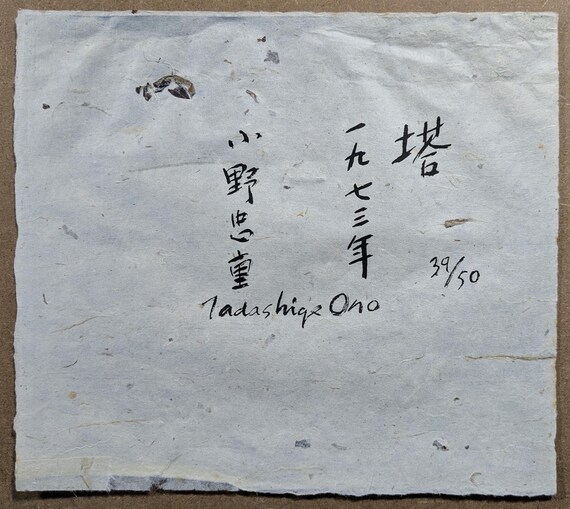 塔
一九七三年
小野忠重
39/50
Tadashige Ono